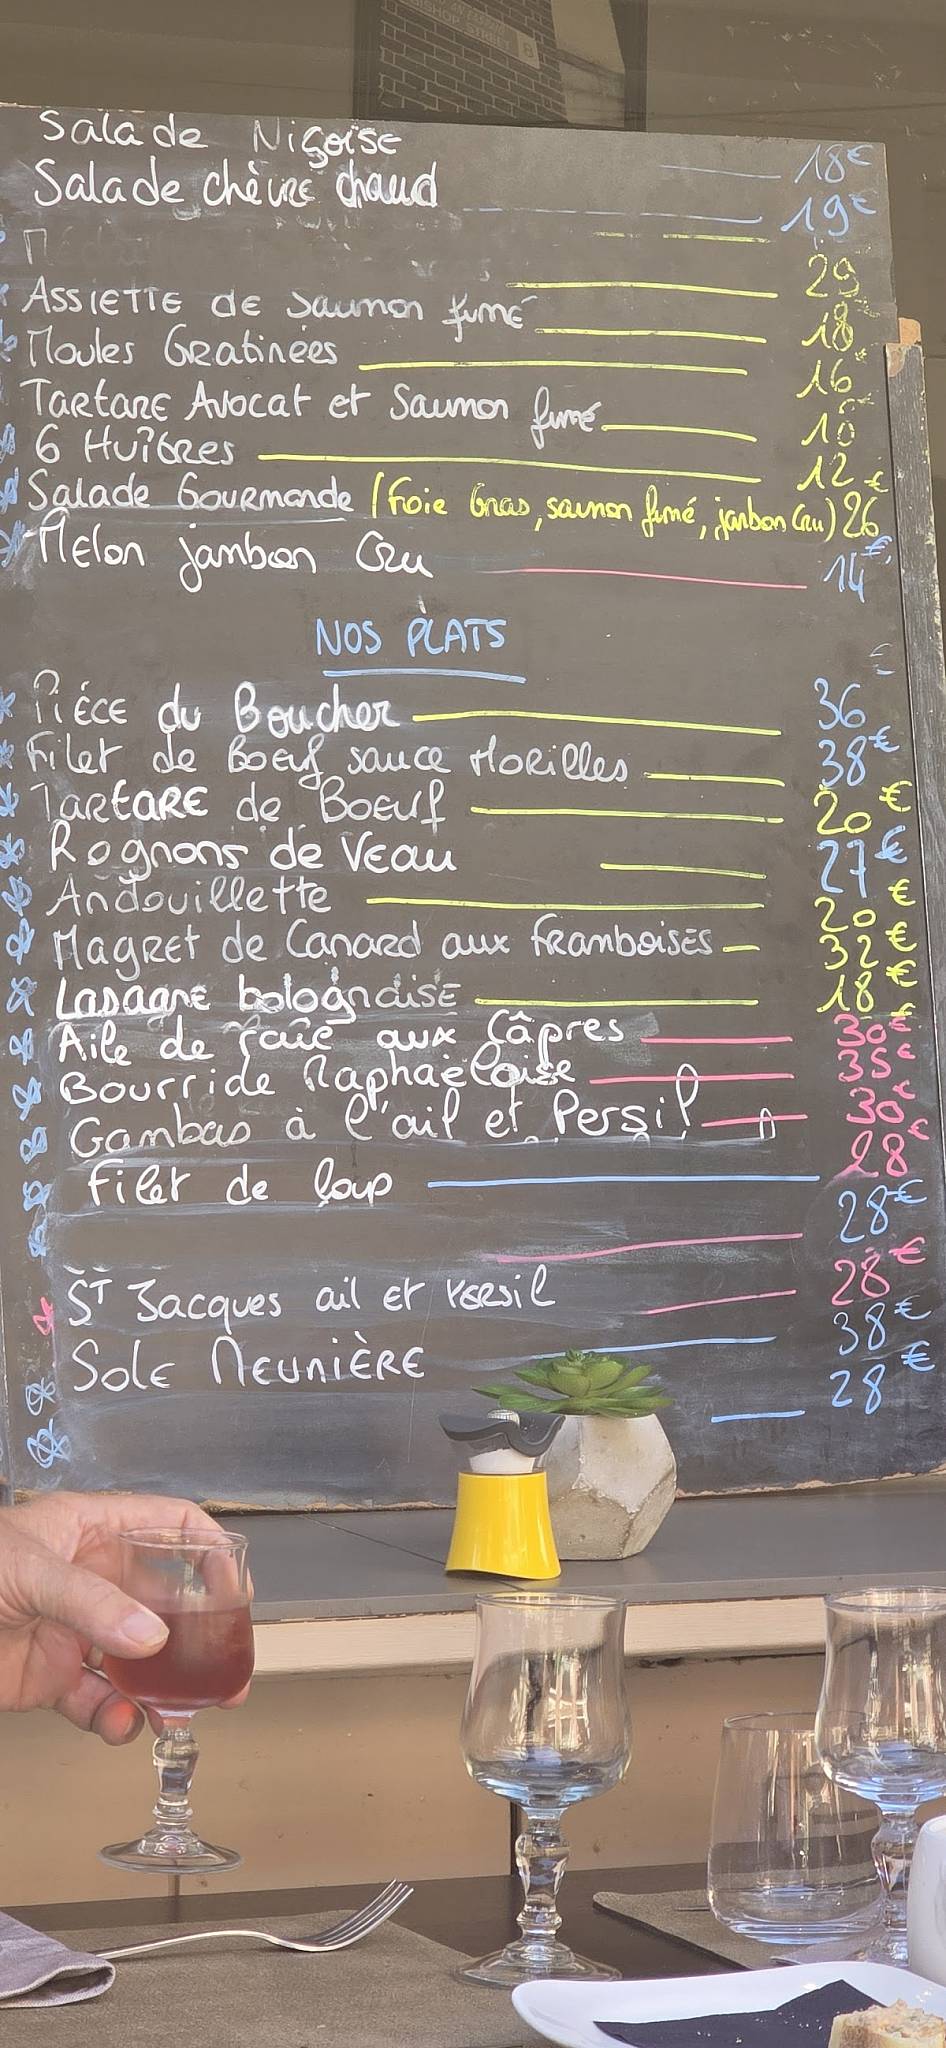 BISHOP STREET 8
Salade Niçoise 18€
Salade chèvre chaud 19€
29
Assiette de saumon fumé 18
Moules Gratinées 16
Tartare Avocat et Saumon fumé
6 Huîtres 12€
Salade Gourmande (Foie Gras, saumon fumé, jambon Cru) 26
Melon jambon Cru 14€
NOS PLATS
€
Pièce du Boucher 36
Filet de Boeuf sauce Morilles 38€
Tartare de Boeuf 20€
Rognons de Veau 27€
Andouillette 20€
Magret de Canard aux framboises 32€
Lasagne bolognaise 18€
Aile de raie aux Câpres 30€
Bourride Raphaëloise 35€
Gambas à l'ail et Persil 30€
28€
Filet de loup 28€
28€
St Jacques ail et Persil 38€
Sole Meunière 28€